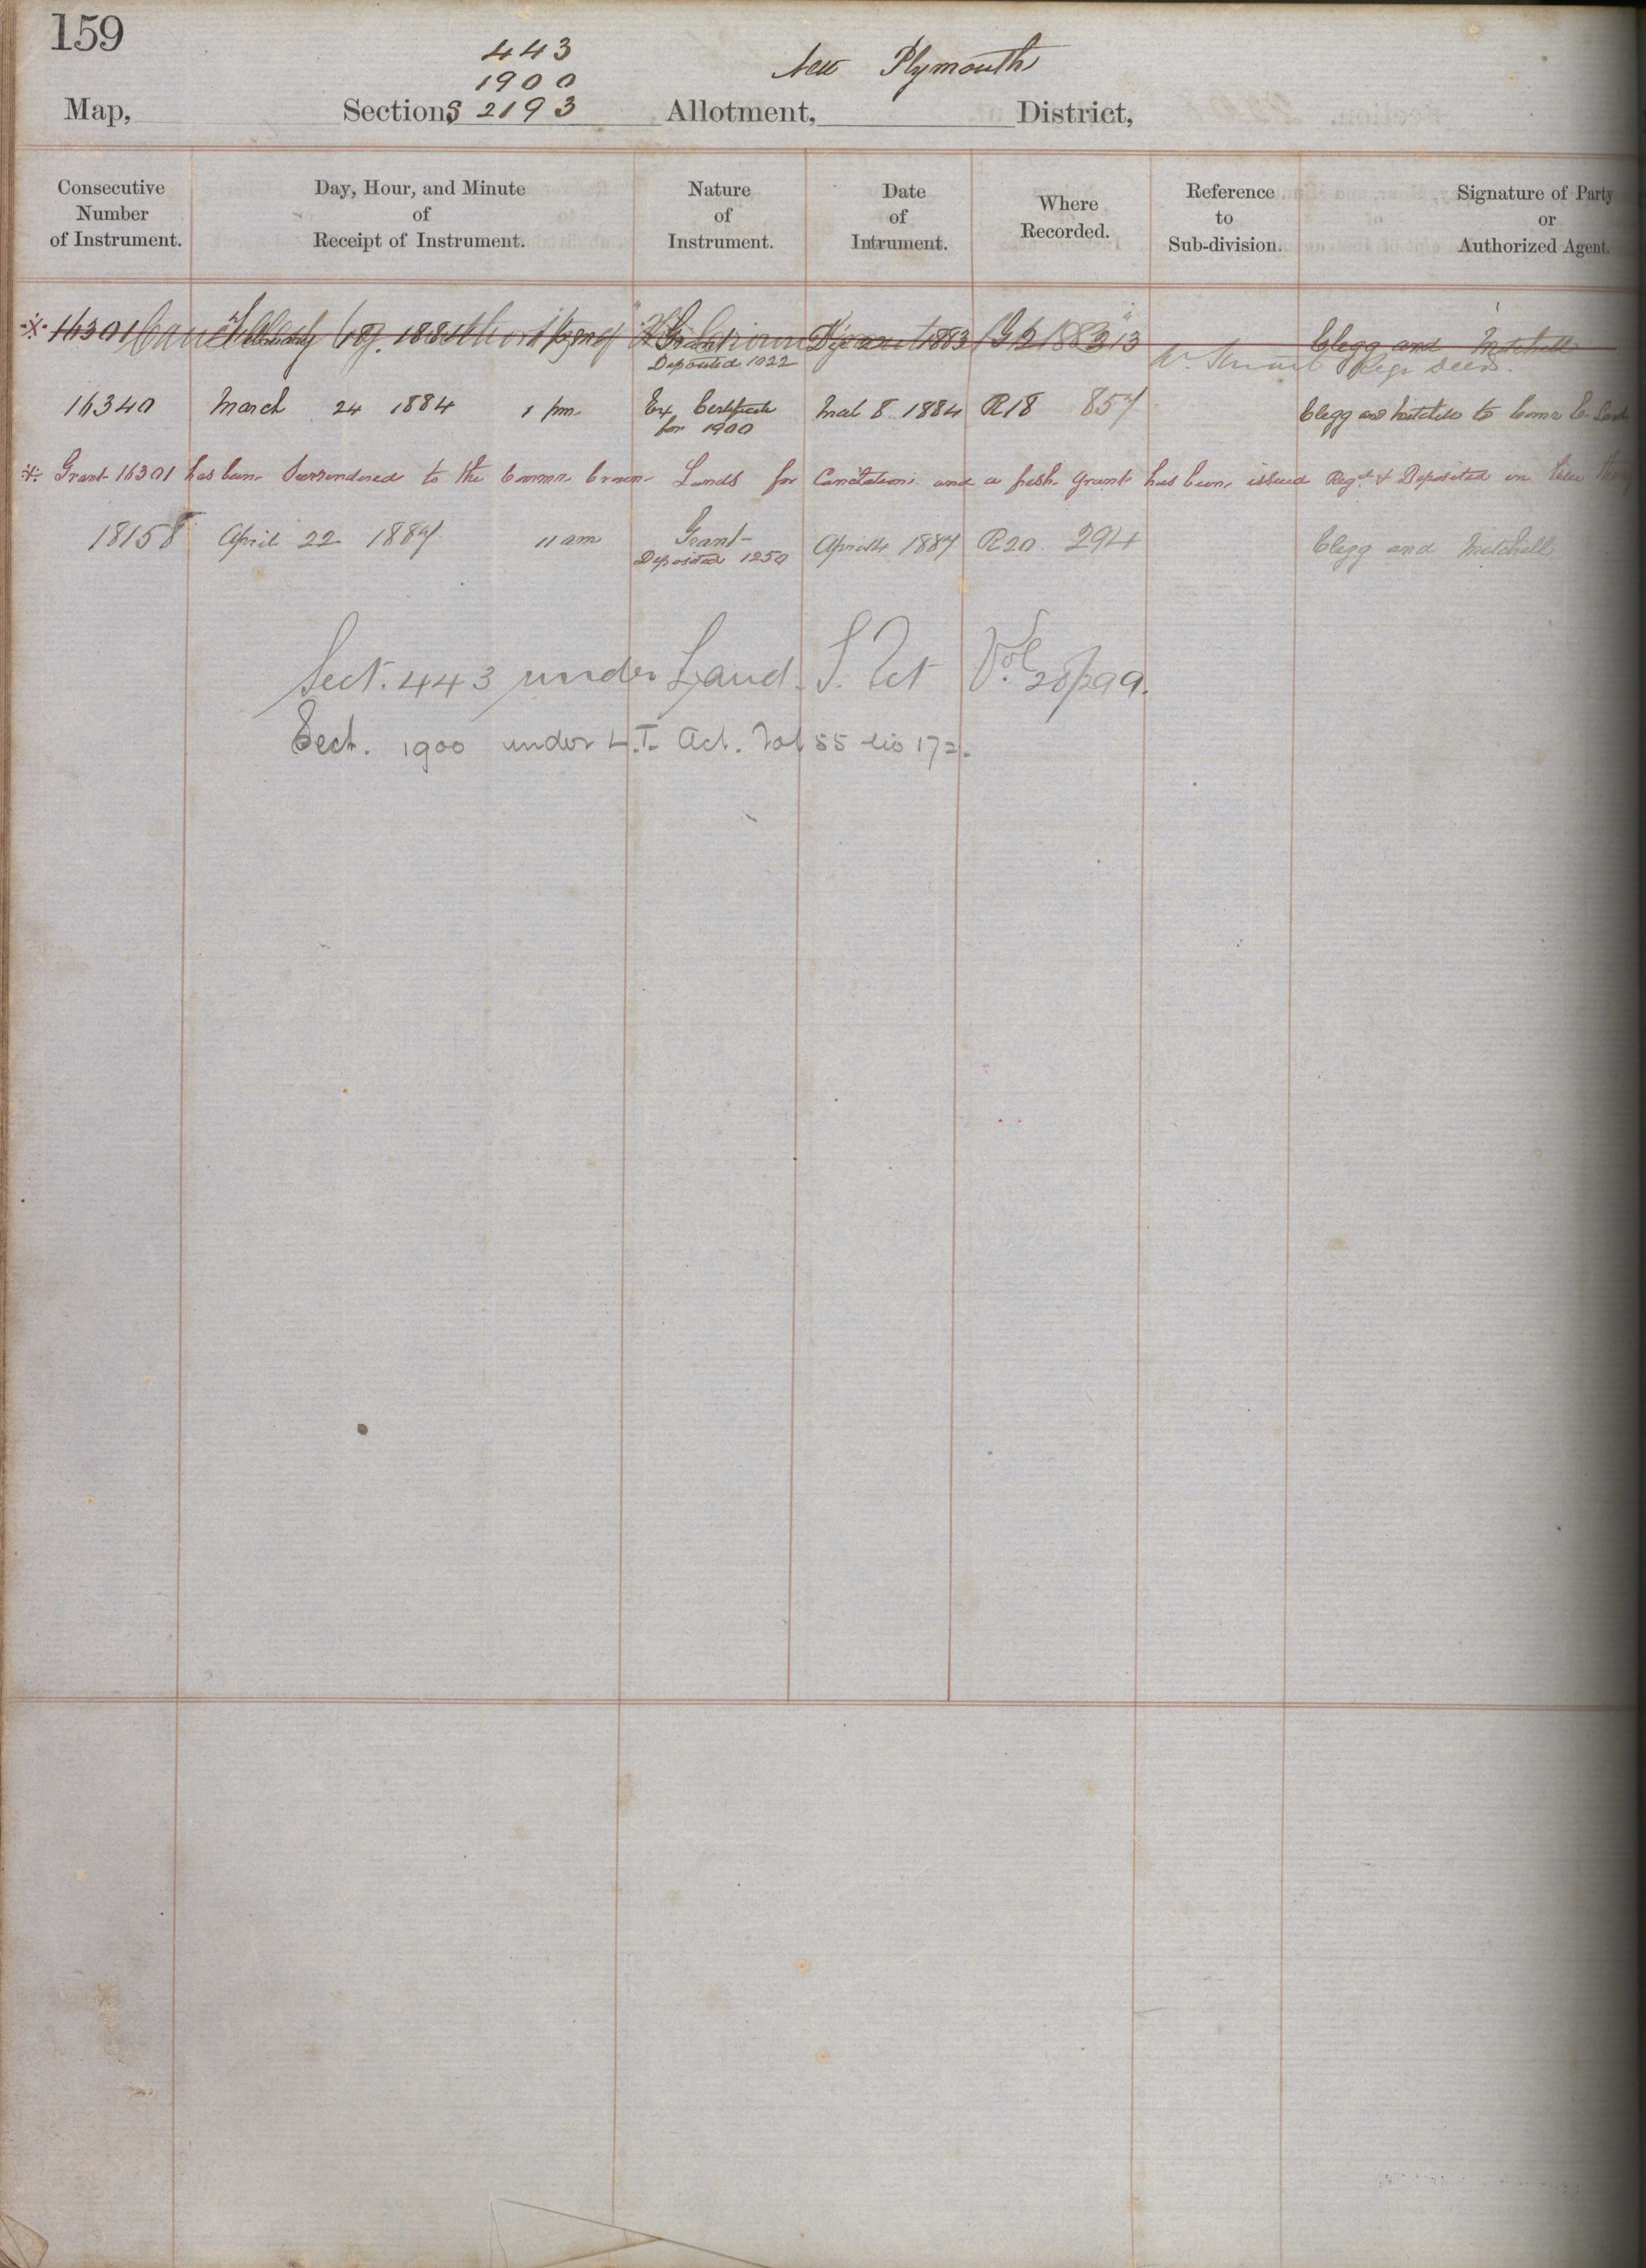 159
443
1900
New Plymouth
Map, Sections 2193 Allotment, District,
Consecutive Number of Instrument.
Day, Hour, and Minute of Receipt of Instrument.
Nature of Instrument.
Date of Intrument.
Where Recorded.
Reference to Sub-division.
Signature of Party or Authorized Agent.
16301 1884 Grant 1883 Clegg and Mitchell
Deposited 1022 Regr Deeds.
16340 March 24 1884 1 pm Ex Certificate Mar 8 1884 R18 857 Clegg and Mitchell to Comr C. Lands
for 1900
Grant 16301 has been Surrendered to the Commr Crown Lands for and a fresh Grant has been issued Regd & Deposited in lieu
18158 April 22 1887 11 am Grant April 4 1887 R20 294 Clegg and Mitchell
Deposited 1250
Sect. 443 under Land T. Act Vol. 28/299.
Sect. 1900 under L.T. Act. Vol 55 lio 172.